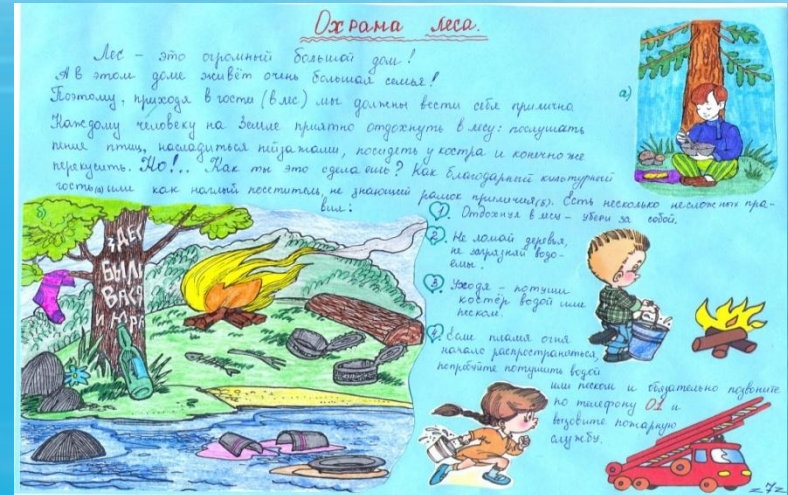 Охрана леса.
Лес - это огромный большой дом!
А в этом доме живёт очень большая семья!
Поэтому, приходя в гости (в лес) мы должны вести себя прилично
Каждому человеку на Земле приятно отдохнуть в лесу: послушать
пение птиц, насладиться пейзажами, посидеть у костра и конечно же
перекусить. Но!.. Как ты это сделаешь? Как благодарный культурный
гость(а) или как наглый посетитель, не знающий рамок приличия(б). Есть несколько несложных пра-
вил:
а)
б)
1. Отдохнул в лесу - убери за собой.
2. Не ломай деревья,
не загрязняй водо-
ёмы.
3. Уходя - потуши
костёр водой или
песком.
4. Если пламя огня
начало распространяться,
попробуйте потушить водой
или песком и обязательно позвоните
по телефону 01 и
вызовите пожарную
службу.
ЗДЕС
БЫЛИ
ВАСЯ
И
z7z